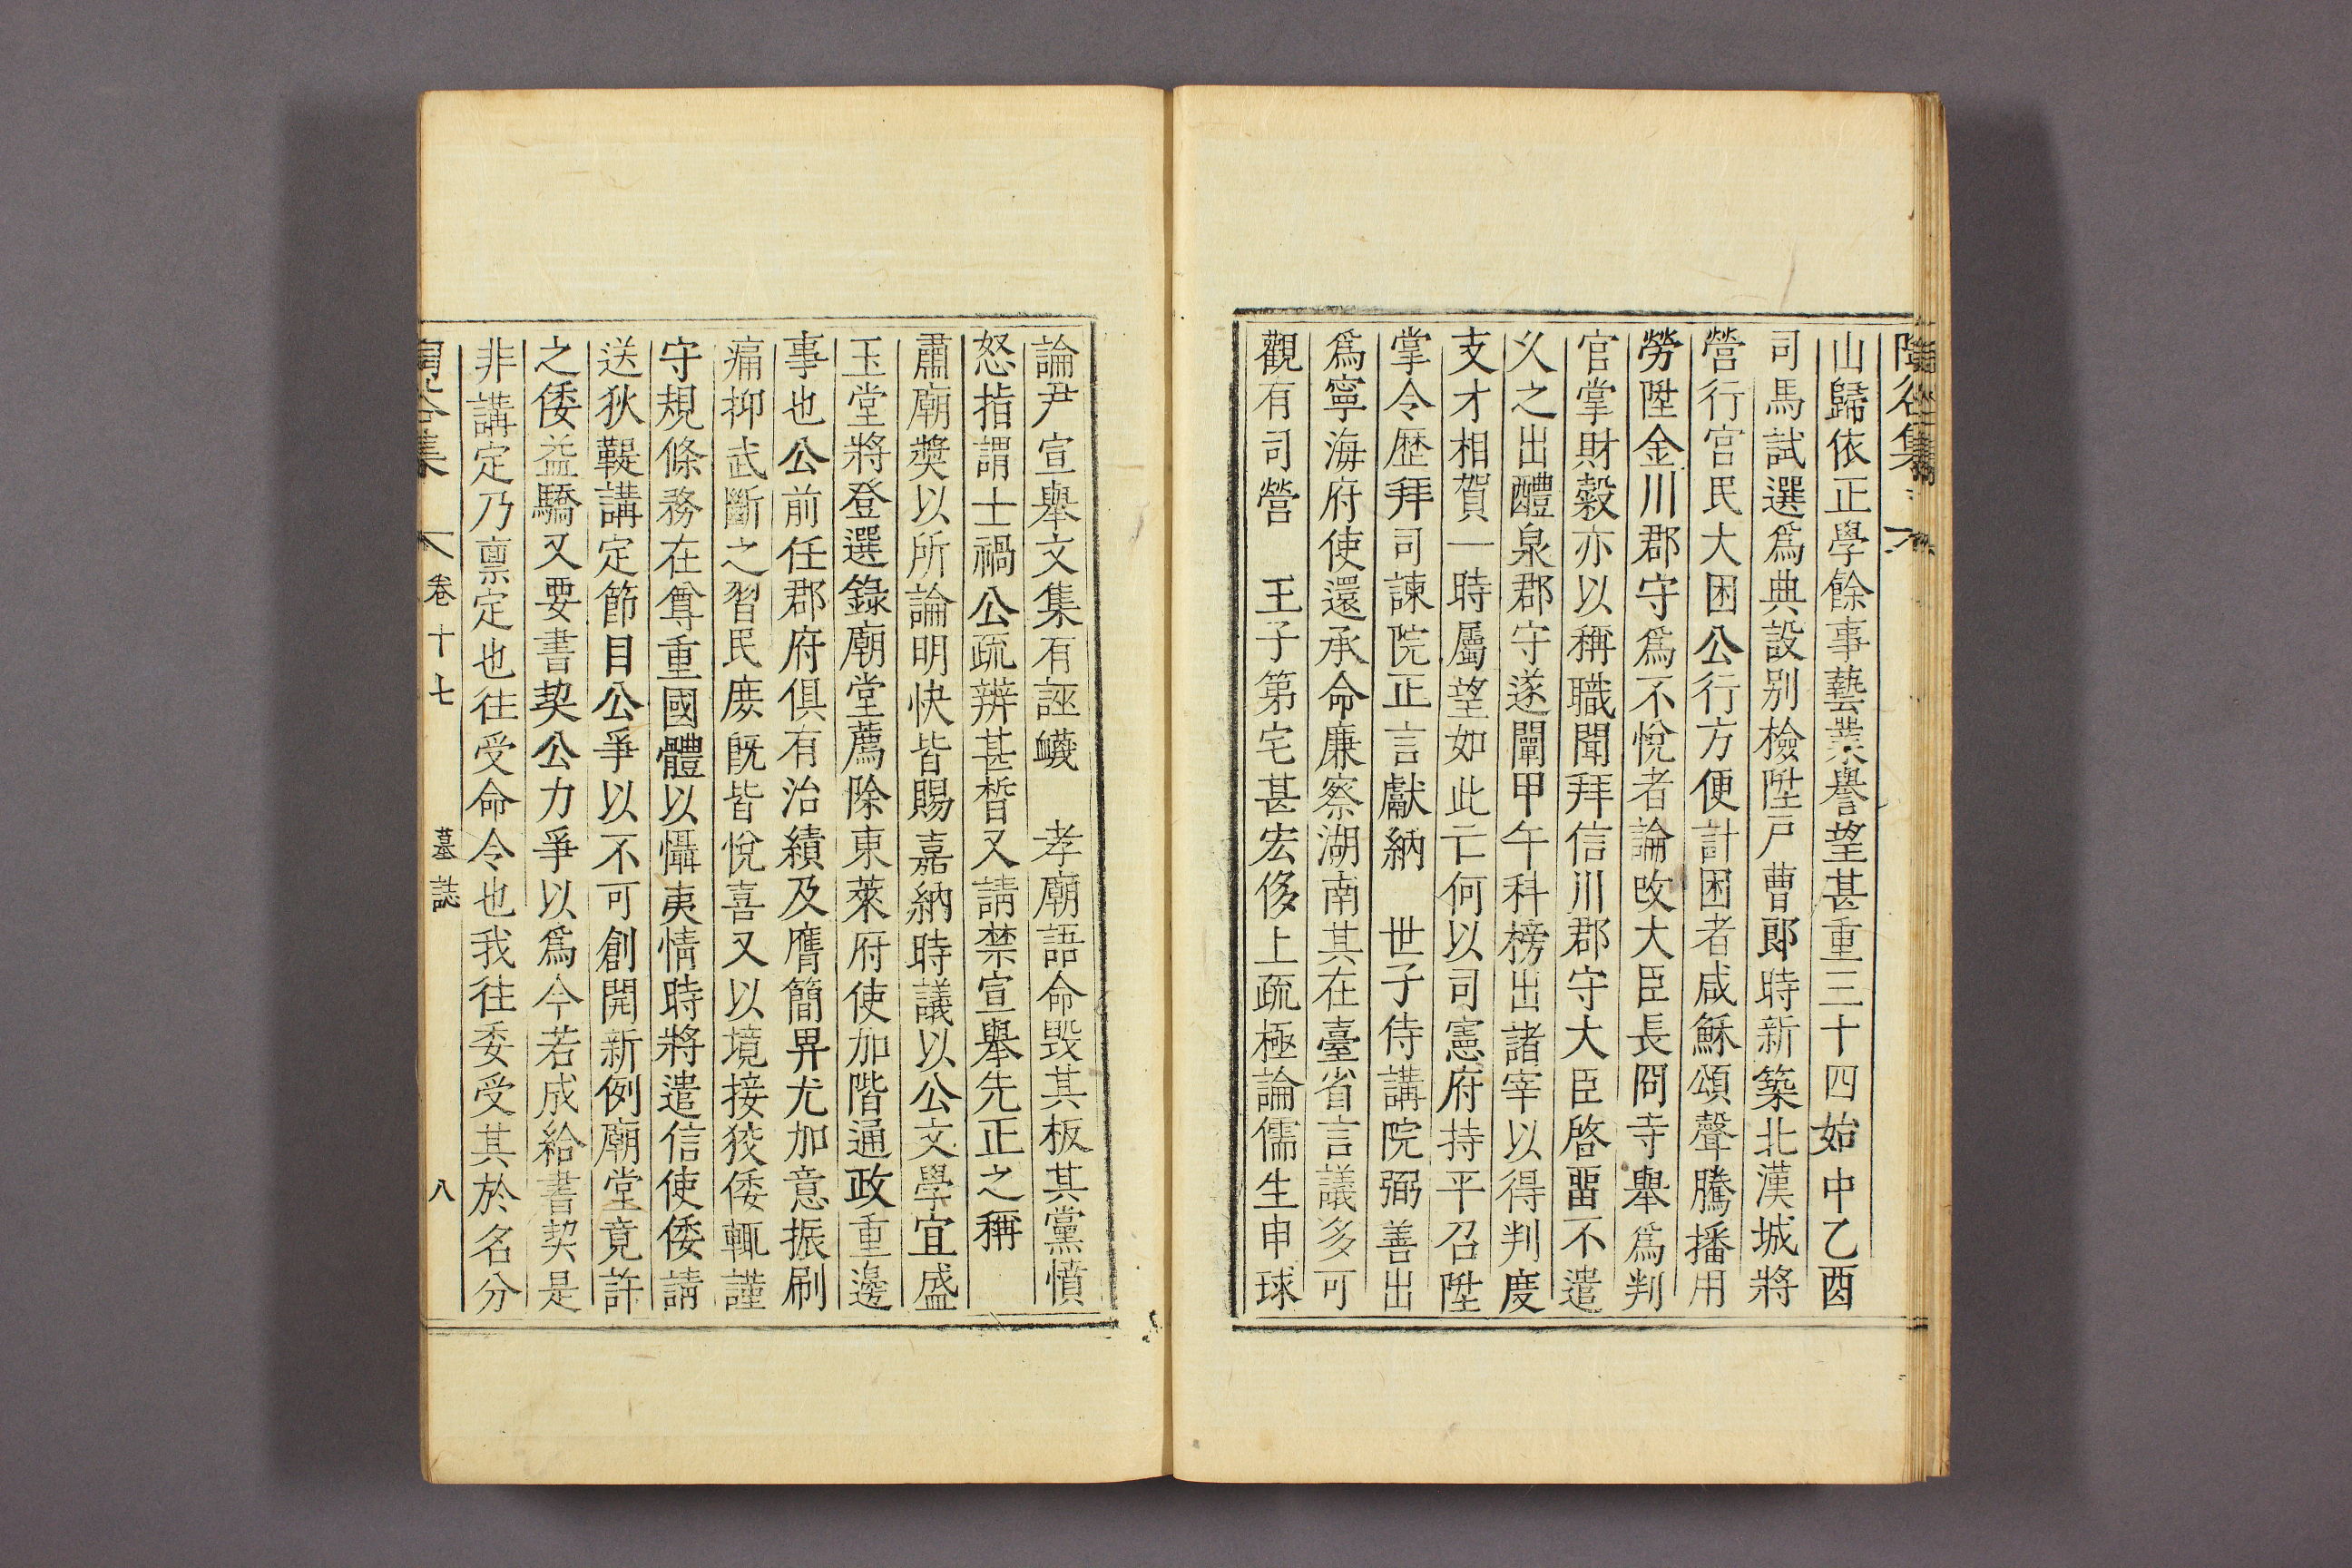 陶谷集
山歸依正學餘事藝業譽望甚重三十四始中乙酉
司馬試選爲典設別檢陞戶曹郎時新築北漢城將
營行宮民大困公行方便計困者咸穌頌聲騰播用
勞陞金川郡守爲不悅者論改大臣長冏寺舉爲判
官掌財穀亦以稱職聞拜信川郡守大臣啓留不遣
久之出醴泉郡守遂闡甲午科榜出諸宰以得判度
支才相賀一時屬望如此亡何以司憲府持平召陞
掌令歷拜司諫院正言獻納 世子侍講院弼善出
爲寧海府使還承命廉察湖南其在臺省言議多可
觀有司營 王子第宅甚宏侈上疏極論儒生申球
論尹宣舉文集有誣衊 孝廟語命毀其板其黨憤
怒指謂士禍公疏辨甚晳又請禁宣舉先正之稱
肅廟奬以所論明快皆賜嘉納時議以公文學宜盛
玉堂將登選錄廟堂薦除東萊府使加階通政重邊
事也公前任郡府俱有治績及膺簡畀尤加意振刷
痛抑武斷之習民庶旣皆悅喜又以境接狡倭輒謹
守規條務在尊重國體以懾夷情時將遣信使倭請
送狄鞮講定節目公爭以不可創開新例廟堂竟許
之倭益驕又要書契公力爭以爲今若成給書契是
非講定乃稟定也往受命令也我往委受其於名分
陶谷集 卷十七 墓誌 八